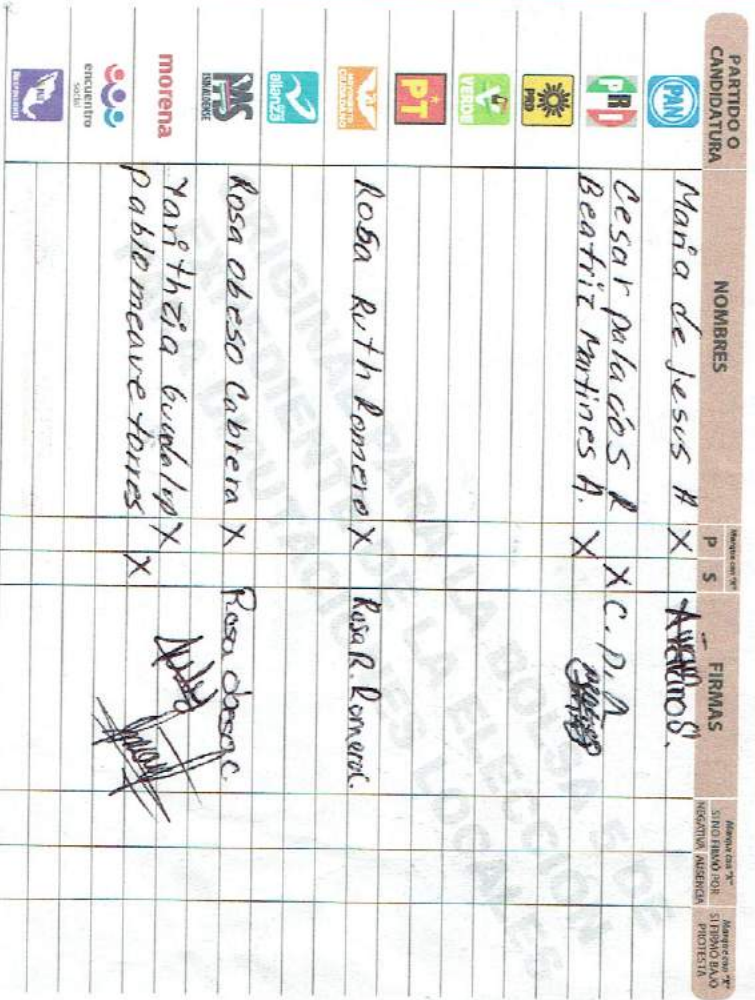 PARTIDO O CANDIDATURA NOMBRES Marque con "X" P S FIRMAS Marque con "X" SI NO FIRMÓ POR NEGATIVA AUSENCIA Marque con "X" SI FIRMÓ BAJO PROTESTA
PAN Maria de jesus A X
PRI Cesar palacios R X C.P.A
Beatriz Martines A. X
PRD
VERDE
PT
MOVIMIENTO CIUDADANO Rosa Ruth Romero X Rosa R. Romero C.
alianza
PAS SINALOENSE Rosa obeso Cabrera X Rosa obeso C.
morena Yarithzia Guadalup X
pablo meave torres X
encuentro social
ORIGINAL PARA LA BOLSA 5 DE
EXPEDIENTE DE LA ELECCIÓN
PARA DIPUTACIONES LOCALES